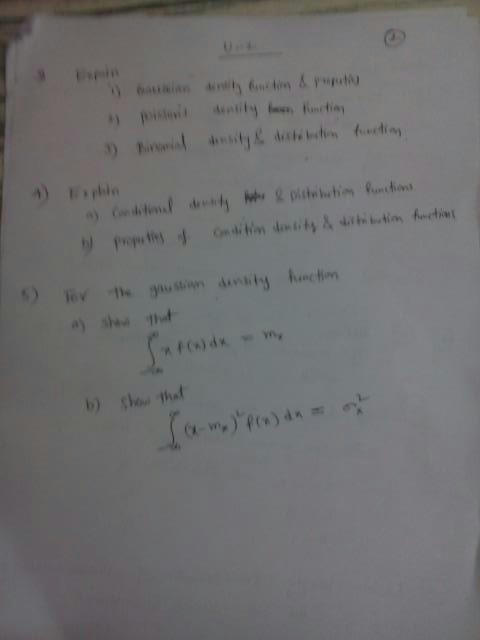 U-2
2
3 Explain
1) Gaussian density function & properties
2) poisson's density function
3) Binomial density & distribution function
4) Explain
a) Conditional density & Distribution functions
b) properties of condition density & distribution functions
5) For the gaussian density function
a) show that
∫_{-∞}^{∞} x f(x) dx = m_x
b) show that
∫_{-∞}^{∞} (x-m_x)^2 f(x) dx = σ_x^2